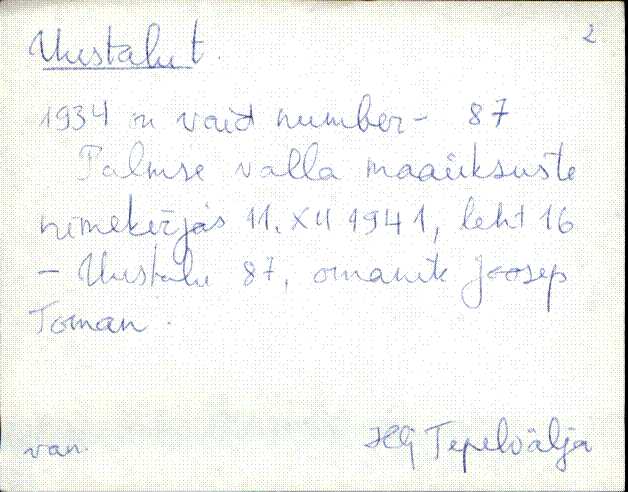 Uustalu t.
2
1934 n vaid number - 87
Palmse valla maaüksuste
nimekirjas 11. XII 1941, leht 16
- Uustalu 87, omanik Joosep
Toman.
van. HlJ Tepelvälja